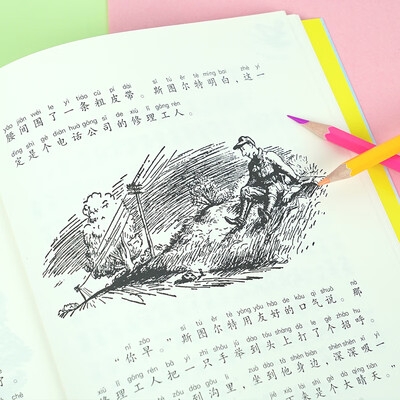 yāo jiān wéi le yì tiáo cū pí dài sī tú ěr tè míng bai zhè yí
腰间围了一条粗皮带。斯图尔特明白，这一
dìng shì gè diàn huà gōng sī de xiū lǐ gōng rén
定是个电话公司的修理工人。
nǐ zǎo sī tú ěr tè yòng yǒu hǎo de kǒu qì shuō nà
“你早。”斯图尔特用友好的口气说。那
xiū lǐ gōng rén bǎ yì zhī shǒu jǔ dào tóu shàng dǎ le gè zhāo hu
修理工人把一只手举到头上打了个招呼。
dào gōu lǐ zuò dào tā shēn biān shēn shēn xī yì
到沟里，坐到他身边，深深吸一
lái shì gè dà qíng tiān
来是个大晴天。”